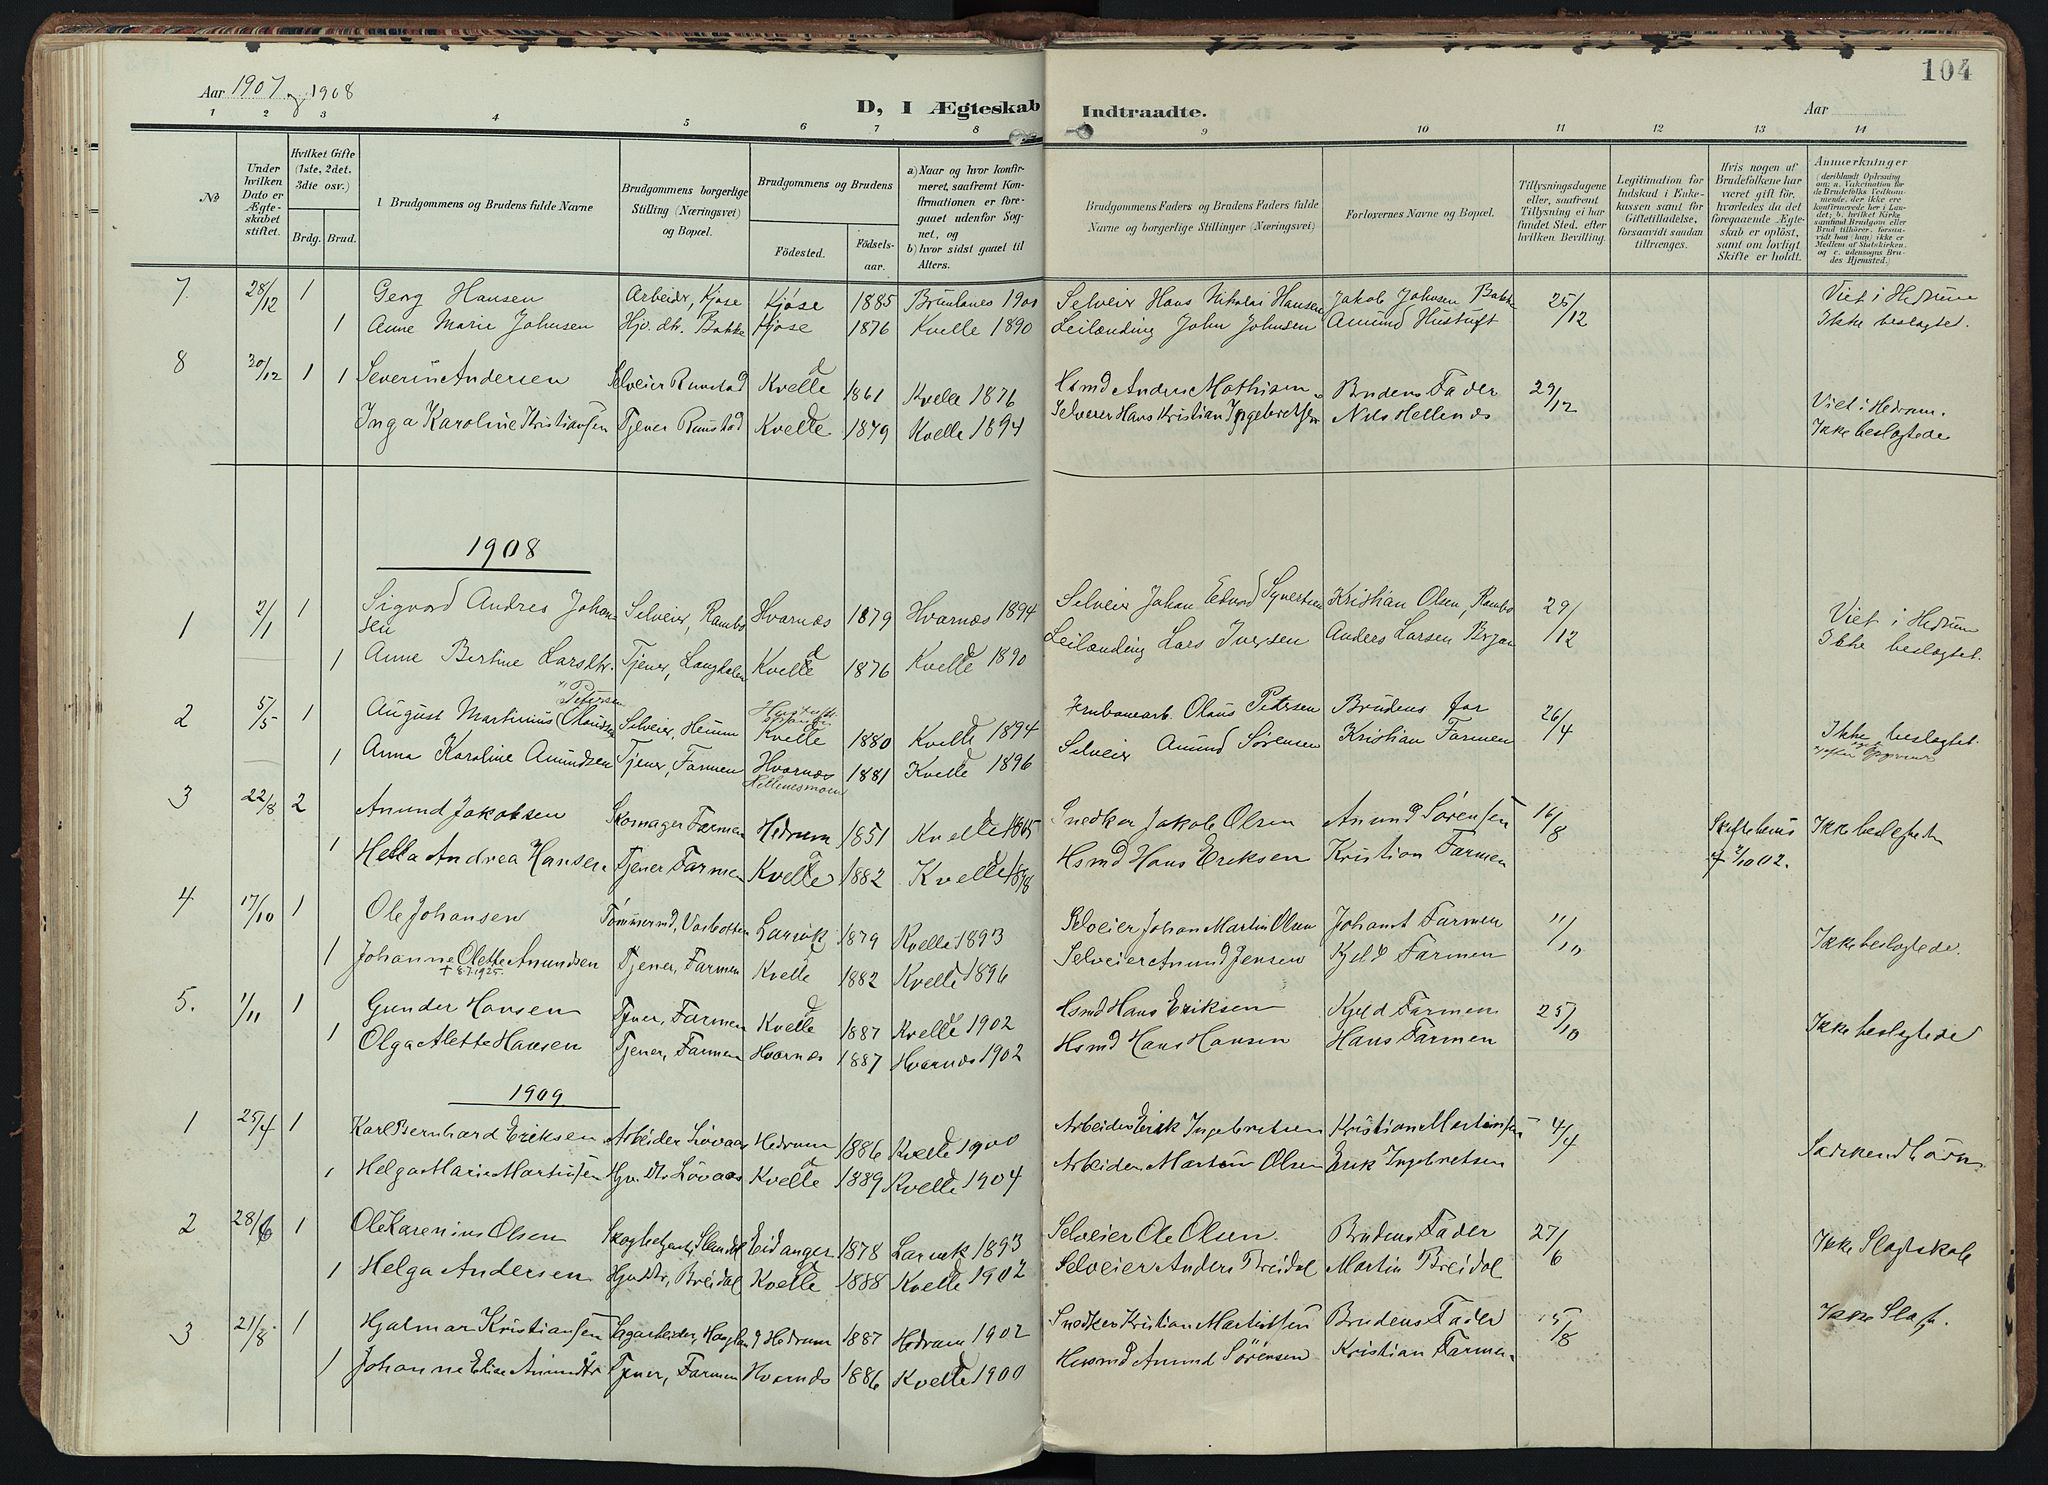 104
Aar 1907 og 1908
D, I Ægteskab Indtraadte.
Aar
1 2 3 4 5 6 7 8 9 10 11 12 13 14
No
Under hvilken Dato er Ægteskabet stiftet.
Hvilket Gifte (1ste, 2det, 3die osv.)
Brdg. Brud.
1 Brudgommens og Brudens fulde Navne
Brudgommens borgerlige Stilling (Næringsvei) og Bopæl.
Brudgommens og Brudens
Födested.
Födselsaar.
a) Naar og hvor konfirmeret, saafremt Konfirmationen er foregaaet udenfor Sognet, og
b) hvor sidst gaaet til Alters.
Brudgommens Faders og Brudens Faders fulde Navne og borgerlige Stillinger (Næringsvei)
Forlovernes Navne og Bopæl.
Tillysningsdagene eller, saafremt Tillysning ei har fundet Sted, efter hvilken Bevilling.
Legitimation for Indskud i Enkekassen samt for Giftetilladelse, forsaavidt saadan tiltrænges.
Hvis nogen af Brudefolkene har været gift för, hvorledes da det foregaaende Ægteskab er oplöst, samt om lovligt Skifte er holdt.
Anmerkninger (deriblandt Oplysning om: a. Vakcination for de Brudefolks Vedkommende, der ikke ere konfirmerede her i Landet; b. hvilket Kirkesamfund Brudgom eller Brud tilhörer, forsaavidt han (hun) ikke er Medlem af Statskirken og c. udensogns Brudes Hjemsted.)
7 28/12 1 Georg Hansen Arbeider, Kjøse Kjøse 1885 Brunlanes 1900 Selveier Hans Nikolai Hansen Jakob Johnsen Bakke 25/12 Viet i Hedrum
1 Anne Marie Johnsen Hjv. dtr. Bakke Kjøse 1876 Kvelle 1890 Leilænding John Johnsen Amund Hustuft Ikke beslagtet.
8 30/12 1 1 Severin Andersen Selveier Rimstad Kvelle 1861 Kvelle 1876 Hsmd Anders Mathisen Brudens Fader 29/12 Viet i Hedrum.
Inga Karoline Kristiansen Tjener Rimstad Kvelle 1879 Kvelle 1894 Selveier Hans Kristian Ingebretsen Nils Hellenes Ikke beslagtede
1908
1 2/1 1 Sigvard Andres Johansen Selveier, Rambo Hvarnæs 1879 Hvarnæs 1894 Selveier Johan Edvard Syvertsen Kristian Olsen, Rambo 29/12 Viet i Hedrum
1 Anne Bertine Larsdtr. Tjener, Langhølen Kvelle 1876 Kvelle 1890 Leilænding Lars Iversen Anders Larsen Ikke beslagtet.
Petersen
2 5/5 1 August Martinius Olaussen Selveier, Heium Kvelle 1880 Kvelle 1894 Jernbanearb. Olaus Petersen Brudens far 26/4 Ikke beslagtet
1 Anna Karoline Amundsen Tjener, Farmen Hvarnæs 1881 Kvelle 1896 Selveier Amund Sørensen Kristian Farmen
Hellenesmoen
3 22/8 2 Amund Jakobsen Skomager Farmen Hedrum 1851 Kvelle 1865 Snedker Jakob Olsen Amund Sørensen 16/8 Skiftebevis Ikke beslegtede
1 Hella Andrea Hansen Tjener Farmen Kvelle 1882 Kvelle 1898 Hsmd Hans Eriksen Kristian Farmen 2/10 02.
4 17/10 1 Ole Johansen Tømmermd, Vasbotten Larvik 1879 Kvelle 1893 Selveier Johan Martin Olsen Johan Farmen 11/10 Ikke beslagtede.
1 Johanne Olette Amundsen Tjener, Farmen Kvelle 1882 Kvelle 1896 Selveier Amund Jensen Kjeld Farmen
+ 8.7.1925.
5. 1/11 1 Gunder Hansen Tjener, Farmen Kvelle 1887 Kvelle 1902 Hsmd Hans Eriksen Kjeld Farmen 25/10 Ikke beslegtede
1 Olga Alette Hansen Tjener, Farmen Hvarnæs 1887 Hvarnæs 1902 Hsmd Hans Hansen Hans Farmen
1909
1 25/4 1 Karl Bernhard Eriksen Arbeider Løvaas Hedrum 1886 Kvelle 1900 Arbeider Erik Ingebretsen Kristian Martinsen 4/4 Søskendbørn
1 Helga Marie Martinsen Hjv. Dtr Løvaas Kvelle 1889 Kvelle 1904 Arbeider Martin Olsen Erik Ingebretsen
2 28/6 1 Ole Karenius Olsen Eidanger 1878 Larvik 1893 Selveier Ole Olsen. Brudens Fader 27/6 Ikke Slagtskab
1 Helga Andersen Hjv. Dtr, Breidal Kvelle 1888 Kvelle 1902 Selveier Anders Breidal Martin Breidal
3 21/8 1 Hjalmar Kristiansen Sagarbeider, Hedrum 1887 Hedrum 1902 Snedker Kristian Martinsen Brudens Fader 15/8 Ikke Slagt.
1 Johanne Elise Amundsdtr Tjener, Farmen Hvarnæs 1886 Kvelle 1900 Husmd Amund Sørensen Kristian Farmen